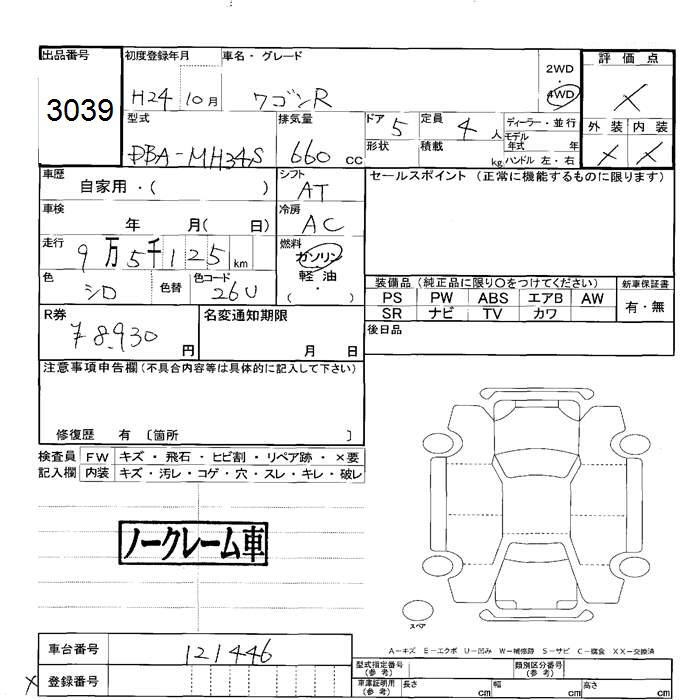 出品番号 初度登録年月 車名・グレード 2WD・4WD 評価点
3039 H24 10月 ワゴンR ×
型式 排気量 ドア 5 定員 4人 ディーラー・並行 外装 内装
DBA-MH34S 660cc 形状 積載 kg モデル年式 年 × ×
ハンドル 左・右
車歴 自家用・( ) シフト AT セールスポイント (正常に機能するものに限ります)
車検 年 月( 日) 冷房 AC
走行 9万5千125km 燃料 ガソリン・軽油・( )
色 シロ 色替 色コード 26U
装備品 (純正品に限り○をつけてください) 新車保証書
PS PW ABS エアB AW 有・無
SR ナビ TV カワ
R券 ¥8,930円 名変通知期限 月 日 後日品
注意事項申告欄 (不具合内容等は具体的に記入して下さい)
修復歴 有 〔箇所 〕
検査員 FW キズ・飛石・ヒビ割・リペア跡・×要
記入欄 内装 キズ・汚レ・コゲ・穴・スレ・キレ・破レ
ノークレーム車
スペア
A-キズ E-エクボ U-凹み W-補修跡 S-サビ C-腐食 XX-交換済
車台番号 121446
× 登録番号
型式指定番号(参考) 類別区分番号(参考)
車庫証明用(参考) 長さ cm 幅 cm 高さ cm